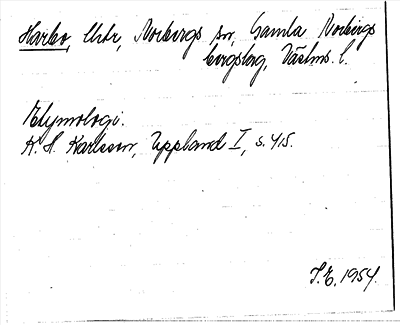 Harbo, Utr, Norbergs sn, Gamla Norbergs
bergslag, Västm. l.
Etymologi.
K. H. Karlsson, Uppland I, s. 415.
J.E. 1954.